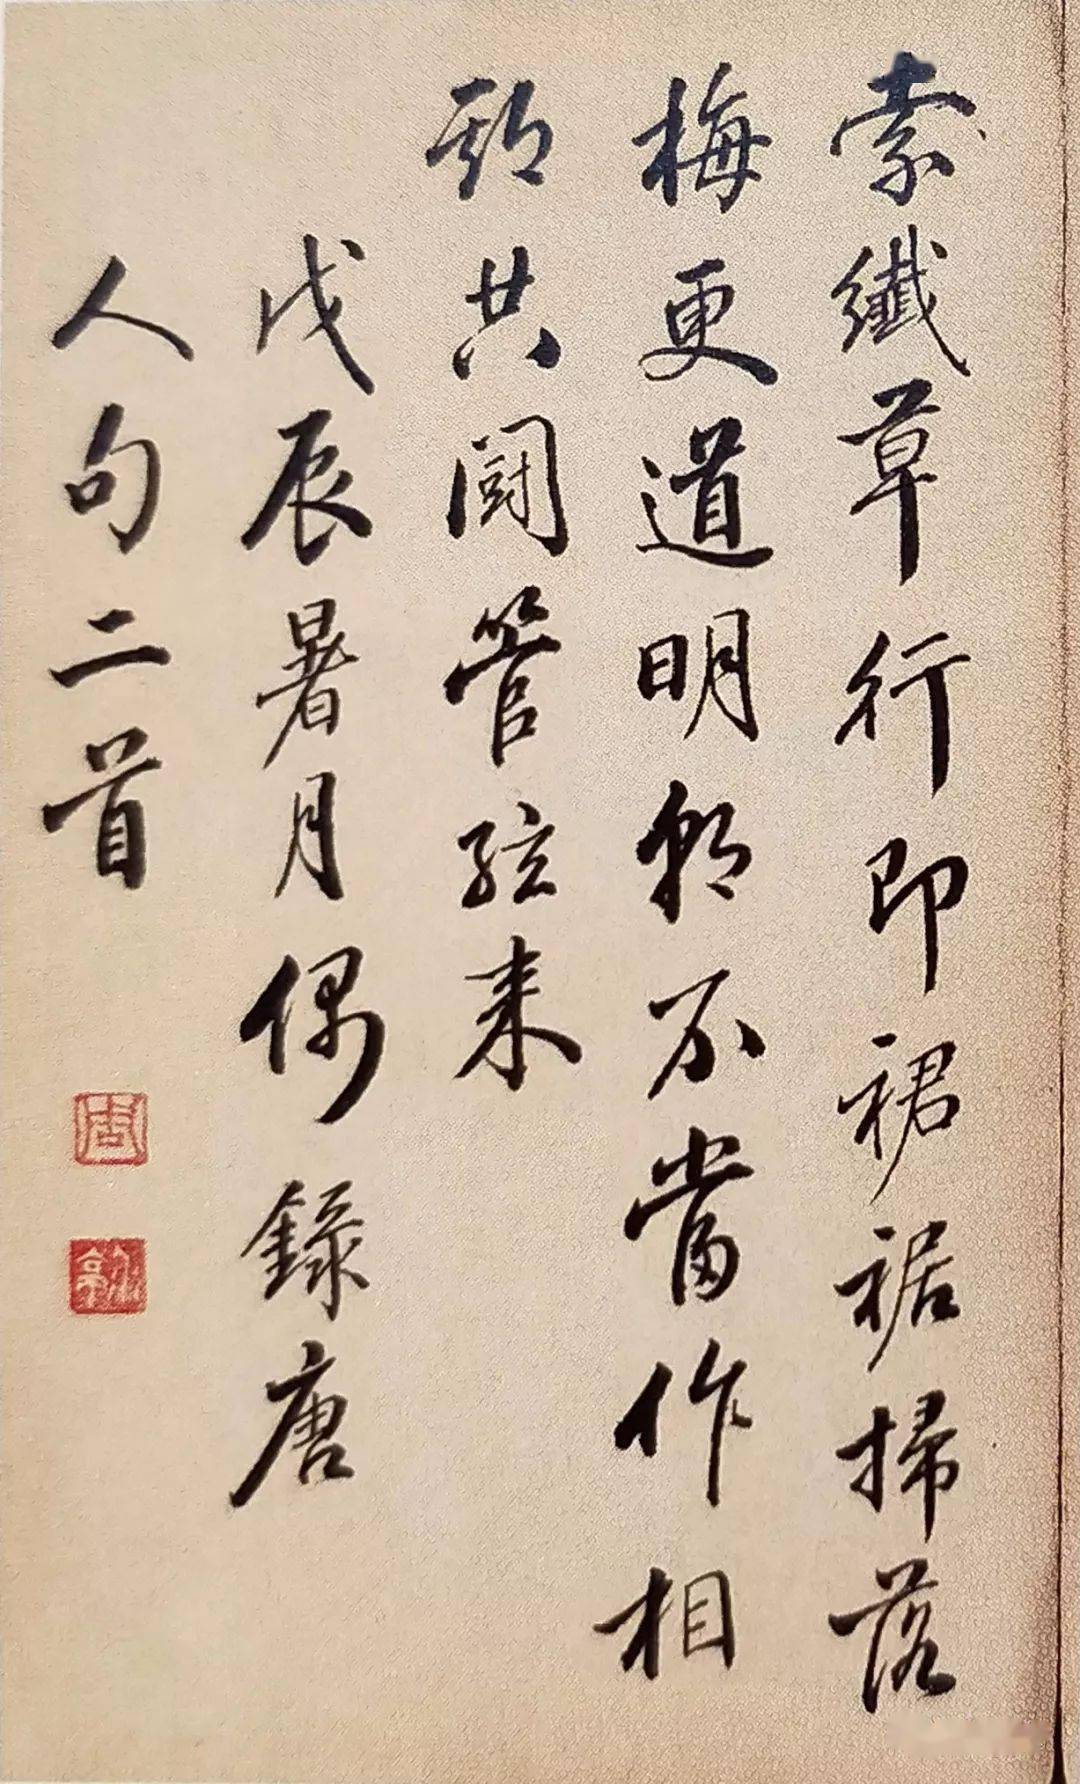 縈纖草行即裙裾掃落
梅更道明朝不當作相
期共闘管絃来
戊辰暑月偶錄唐
人句二首
周